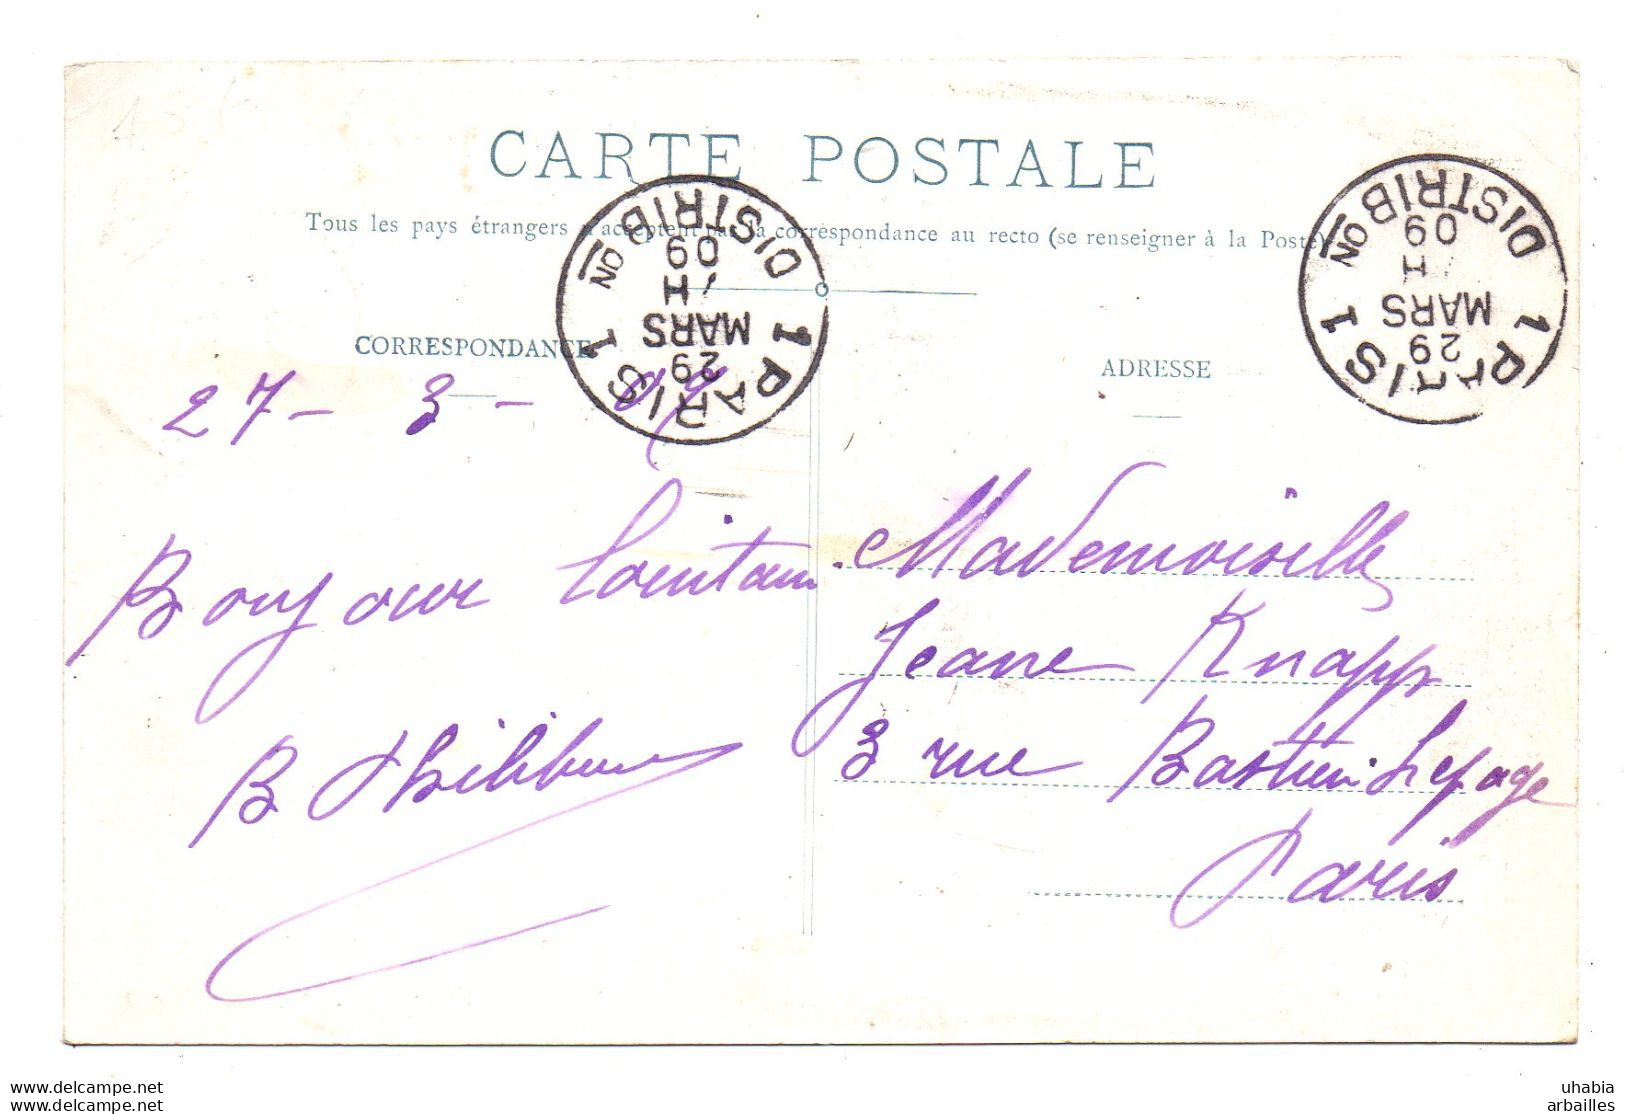 CARTE POSTALE
Tous les pays étrangers n'acceptent pas la correspondance au recto (se renseigner à la Poste)
CORRESPONDANCE
27 - 3 - 09
Bonjour lointain
B
ADRESSE
Mademoiselle
Jeane Knapp
3 rue Bastien Lepage
Paris
1 PARIS 1
29
MARS
H
09
DISTRIBON
1 PARIS 1
29
MARS
H
09
DISTRIBON
www.delcampe.net
www.delcampe.net
uhabia
arbailles